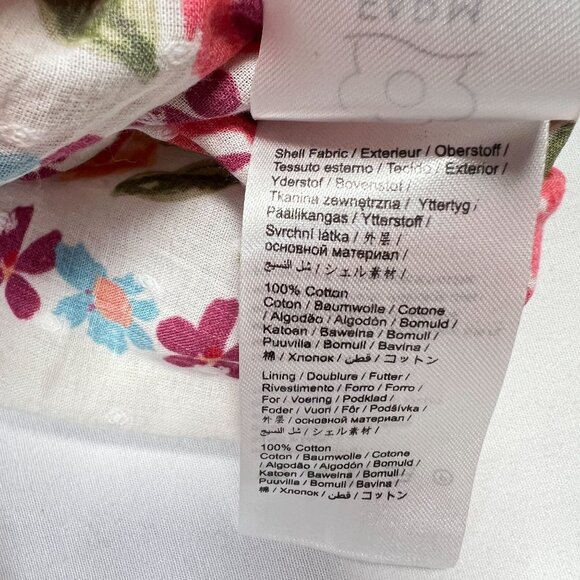 Shell Fabric / Exterieur / Oberstoff /
Tessuto esterno / Tecido / Exterior /
Yderstof / Bovenstof /
Tkanina zewnętrzna / Yttertyg /
Päällikangas / Ytterstoff /
Svrchní látka / 外层 /
основной материал /
シェル素材 /
100% Cotton
Coton / Baumwolle / Cotone
/ Algodão / Algodón / Bomuld /
Katoen / Bawełna / Bomull /
Puuvilla / Bomull / Bavlna /
棉 / Хлопок / قطن / コットン
Lining / Doublure / Futter /
Rivestimento / Forro / Forro /
For / Voering / Podkład /
Foder / Vuori / Fôr / Podšívka /
外层 / основной материал /
シェル素材 /
100% Cotton
Coton / Baumwolle / Cotone
/ Algodão / Algodón / Bomuld /
Katoen / Bawełna / Bomull /
Puuvilla / Bomull / Bavlna /
棉 / Хлопок / قطن / コットン